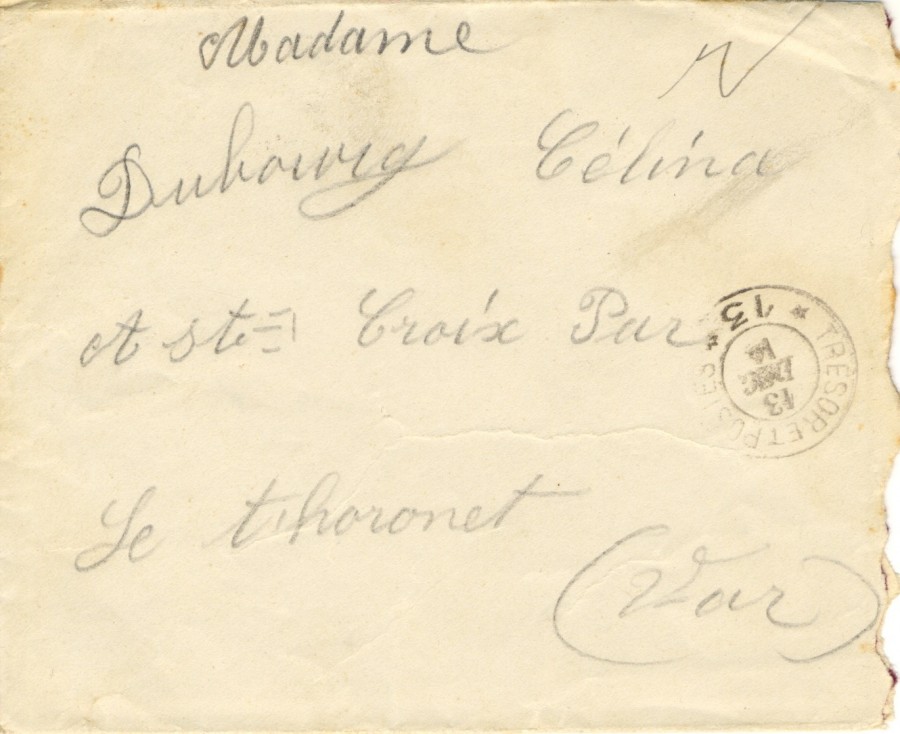 Madame
Dubourg Célina
A ste Croix Par
Le thoronet
(Var)
TRÉSOR ET POSTES
* 13 *
13
DEC
14